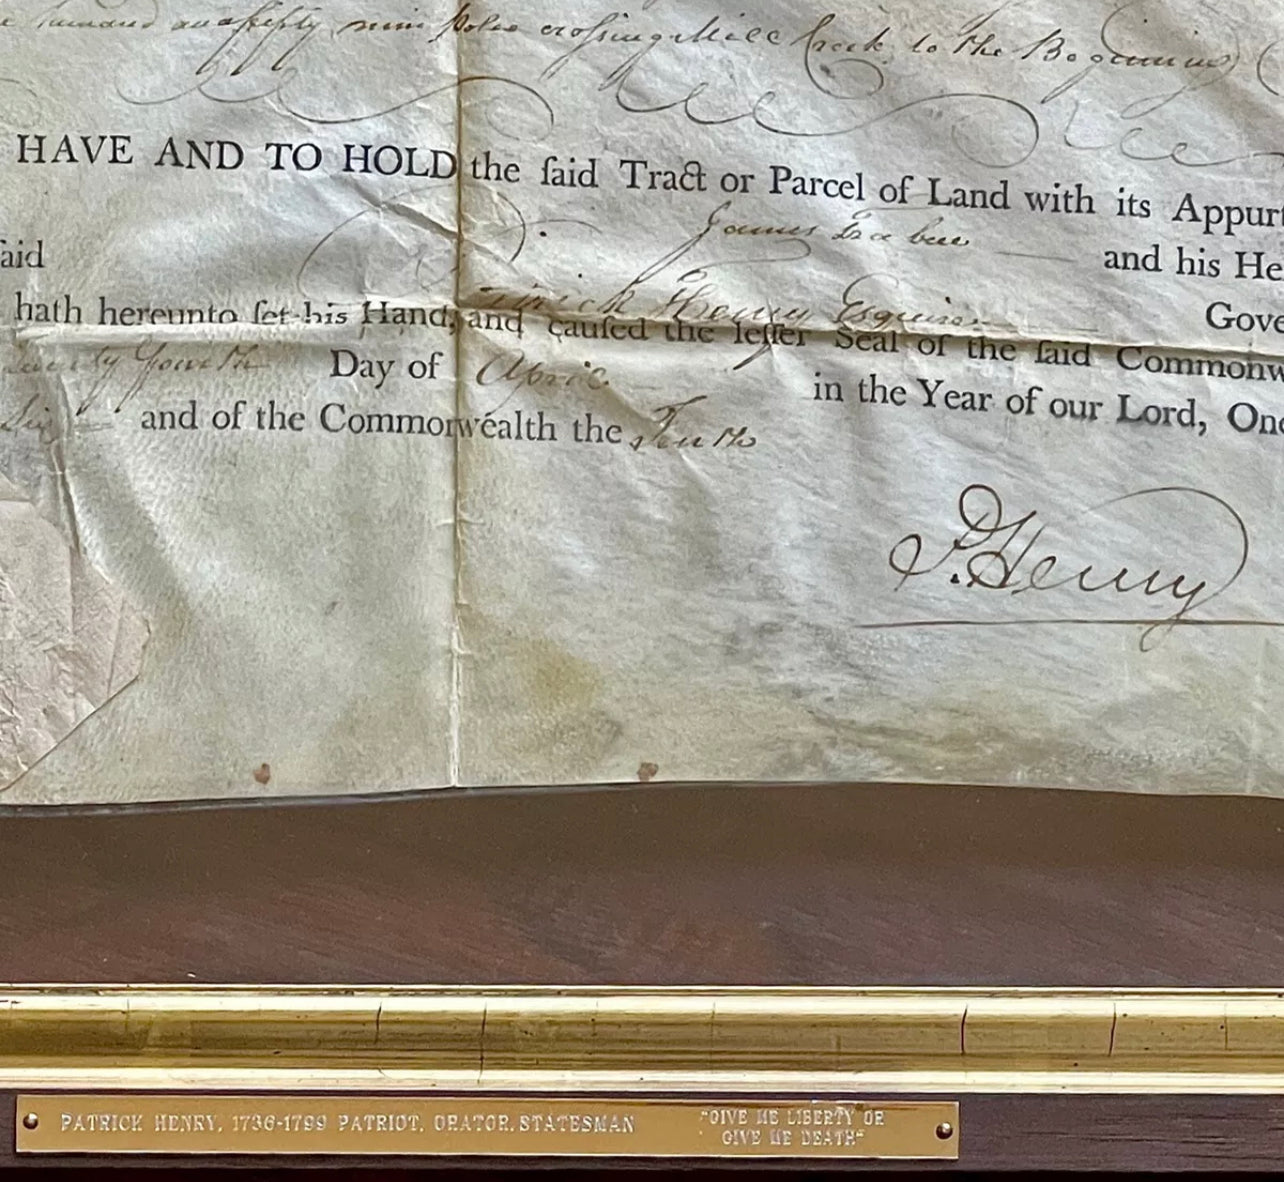 hundred and fifty nine Poles crossing Mill Creek to the Beginning
HAVE AND TO HOLD the ſaid Tract or Parcel of Land with its Appurt
ſaid James and his He
Patrick Henry Esquire Gove
hath hereunto ſet his Hand, and cauſed the leſſer Seal of the ſaid Commonw
twenty fourth Day of April in the Year of our Lord, One
Six and of the Commonwealth the Tenth
P. Henry
PATRICK HENRY, 1736-1799 PATRIOT, ORATOR, STATESMAN
"GIVE ME LIBERTY OR
GIVE ME DEATH"